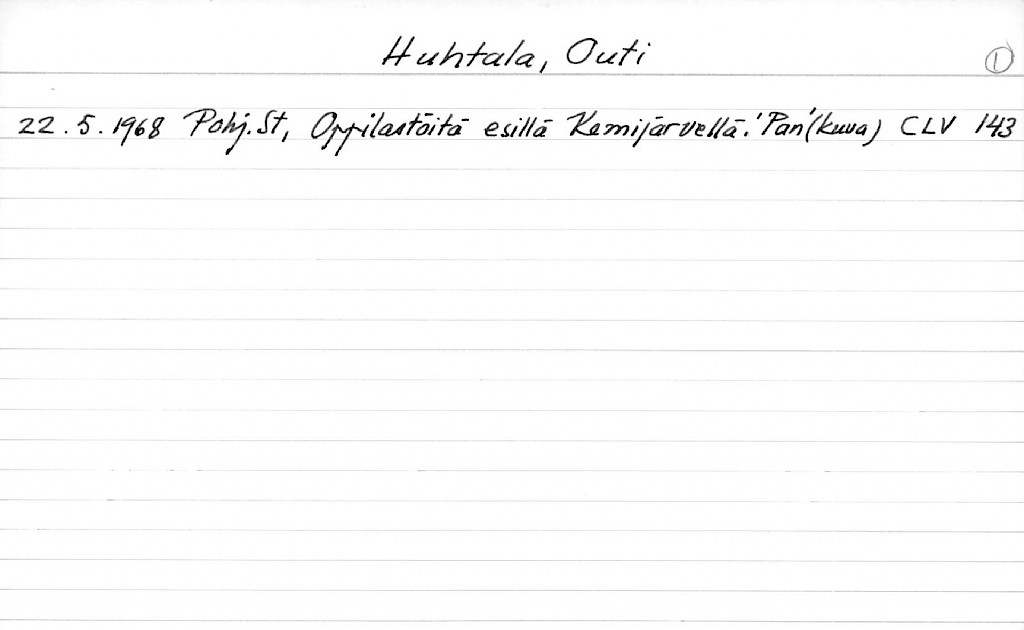 Huhtala, Outi ①
22.5.1968 Pohj.St, Oppilastöitä esillä Kemijärvellä. 'Pan' (kuva) CLV 143